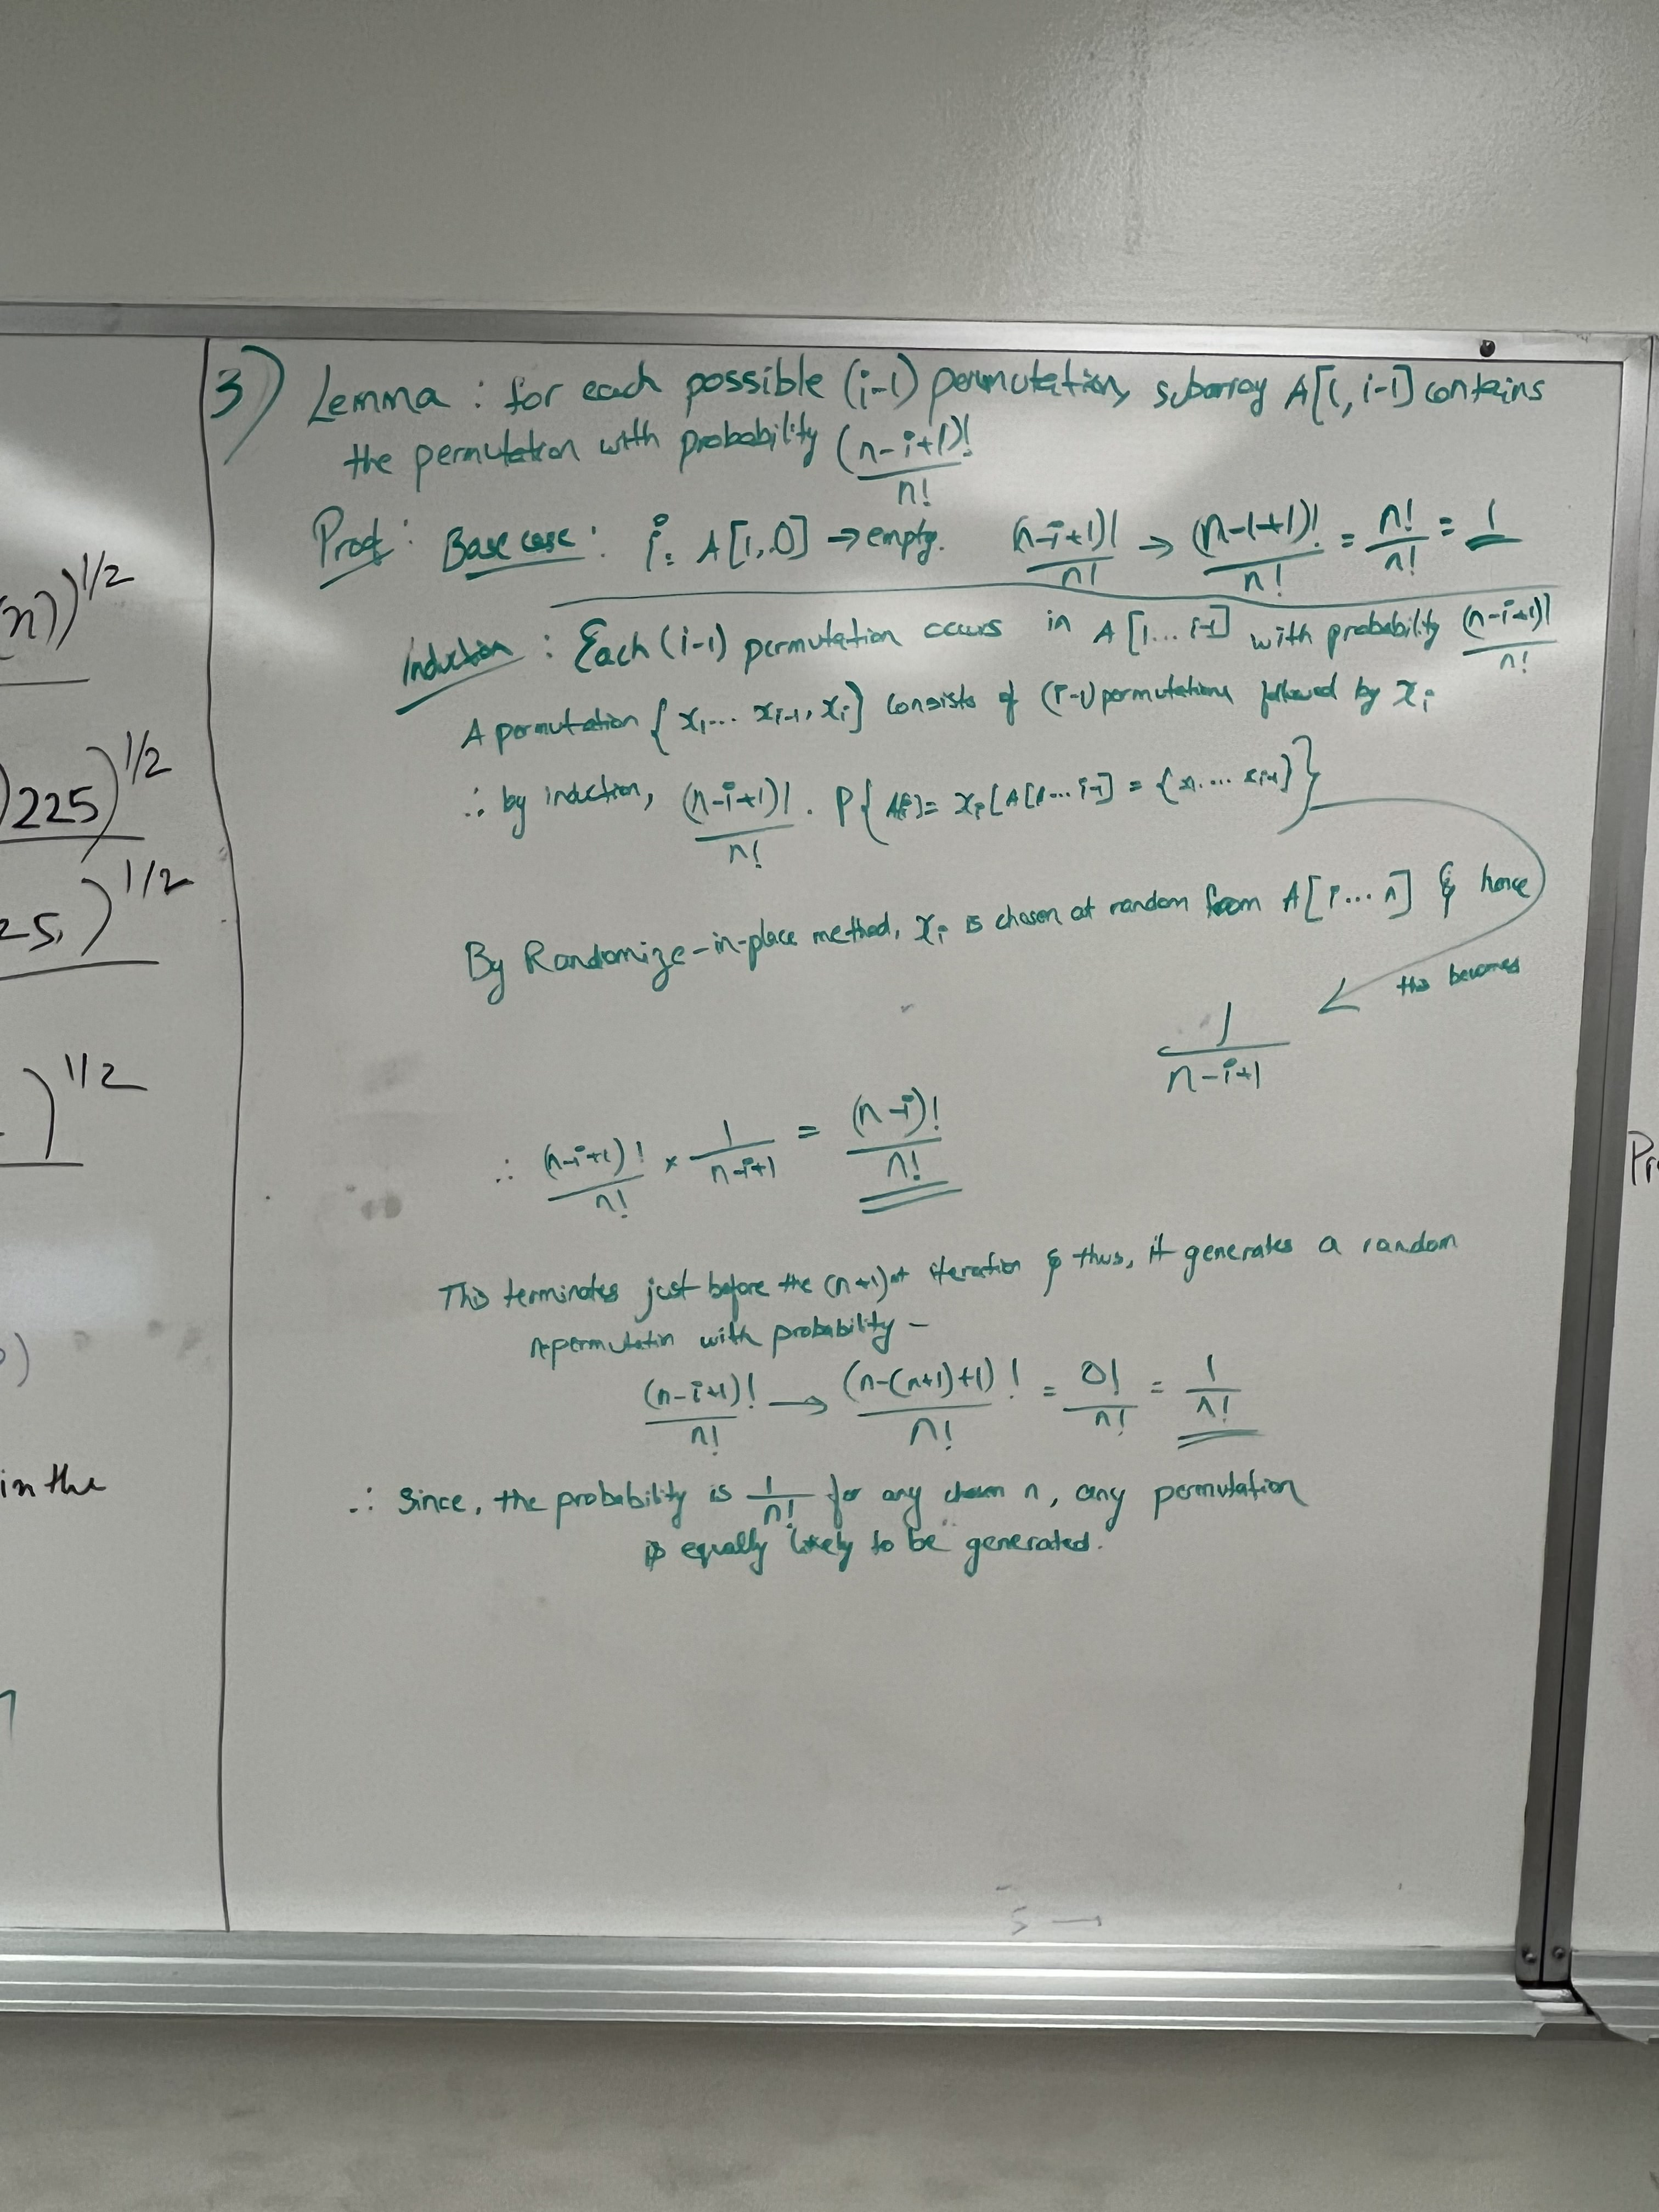 (n))^1/2
)225)^1/2
25,)^1/2
)^1/2
in the
3) Lemma : for each possible (i-1) permutation, subarray A[1, i-1] contains
the permutation with probability (n-i+1)!/n!
Proof : Base case : i = A[1, 0] → empty. (n-i+1)!/n! → (n-1+1)!/n! = n!/n! = 1
Induction : Each (i-1) permutation occurs in A[1... i-1] with probability (n-i+1)!/n!
A permutation { x1... xi-1, xi} consists of (i-1) permutations followed by xi
∴ by induction, (n-i+1)!/n! . P{ A[i] = xi [A[1... i-1] = {x1.... xi-1}}
By Randomize-in-place method, xi is chosen at random from A[i... n] & hence
this becomes
1/n-i+1
∴ (n-i+1)!/n! × 1/n-i+1 = (n-i)!/n!
This terminates just before the (n+1)st iteration & thus, it generates a random
n-permutatin with probability -
(n-i+1)!/n! → (n-(n+1)+1)!/n! = 0!/n! = 1/n!
∴ Since, the probability is 1/n! for any chosen n, any permutation
is equally likely to be generated.
5 →
Pr